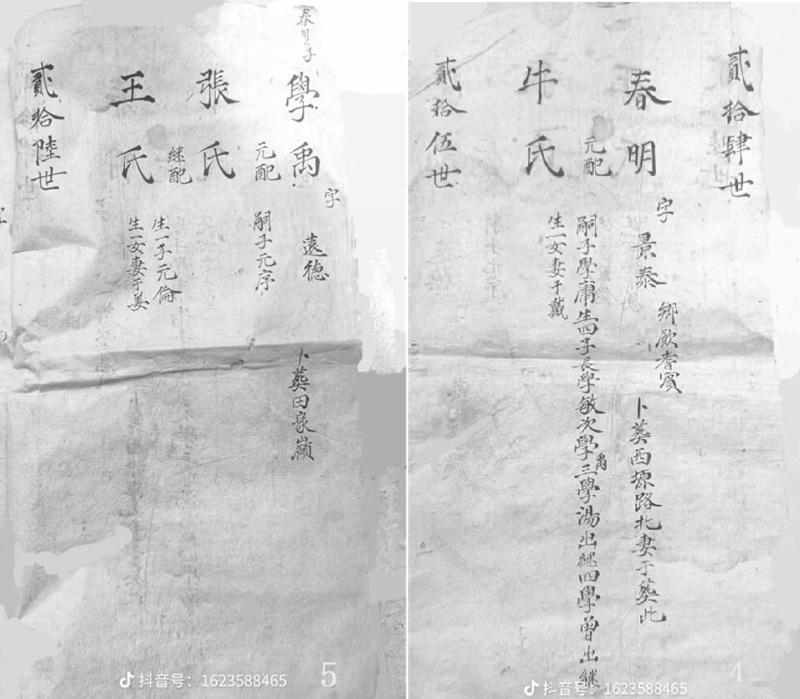 貳拾肆世
春明
字
景泰
鄉飲耆賓
卜葬西塬路北妻于葬此
元配
牛氏
嗣子學庸生四子長學敏次學禹三學湯出継四學曾出継
生一女妻于戴
貳拾伍世
抖音号：1623588465
4
春明子
學禹
字
遠德
卜葬田家嶺
元配
張氏
嗣子元序
継配
王氏
生一子元倫
生一女妻于姜
貳拾陸世
抖音号：1623588465
5